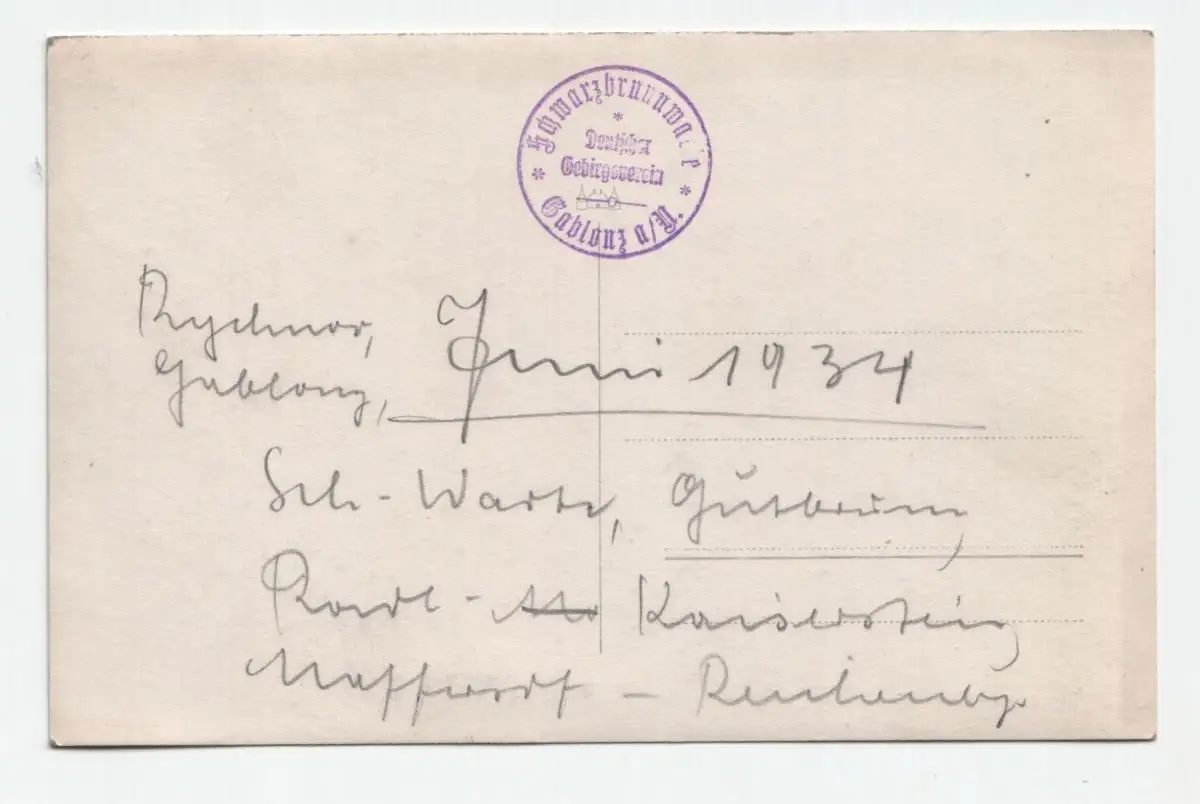 Schwarzbrunnwarte
Deutscher
Gebirgsverein
Gablonz a/N.
Rychnov,
Gablonz, Juni 1934
Sch-Warte, Gutbrunn,
Kaiserstein,
Maffersdf - Reichenbg.